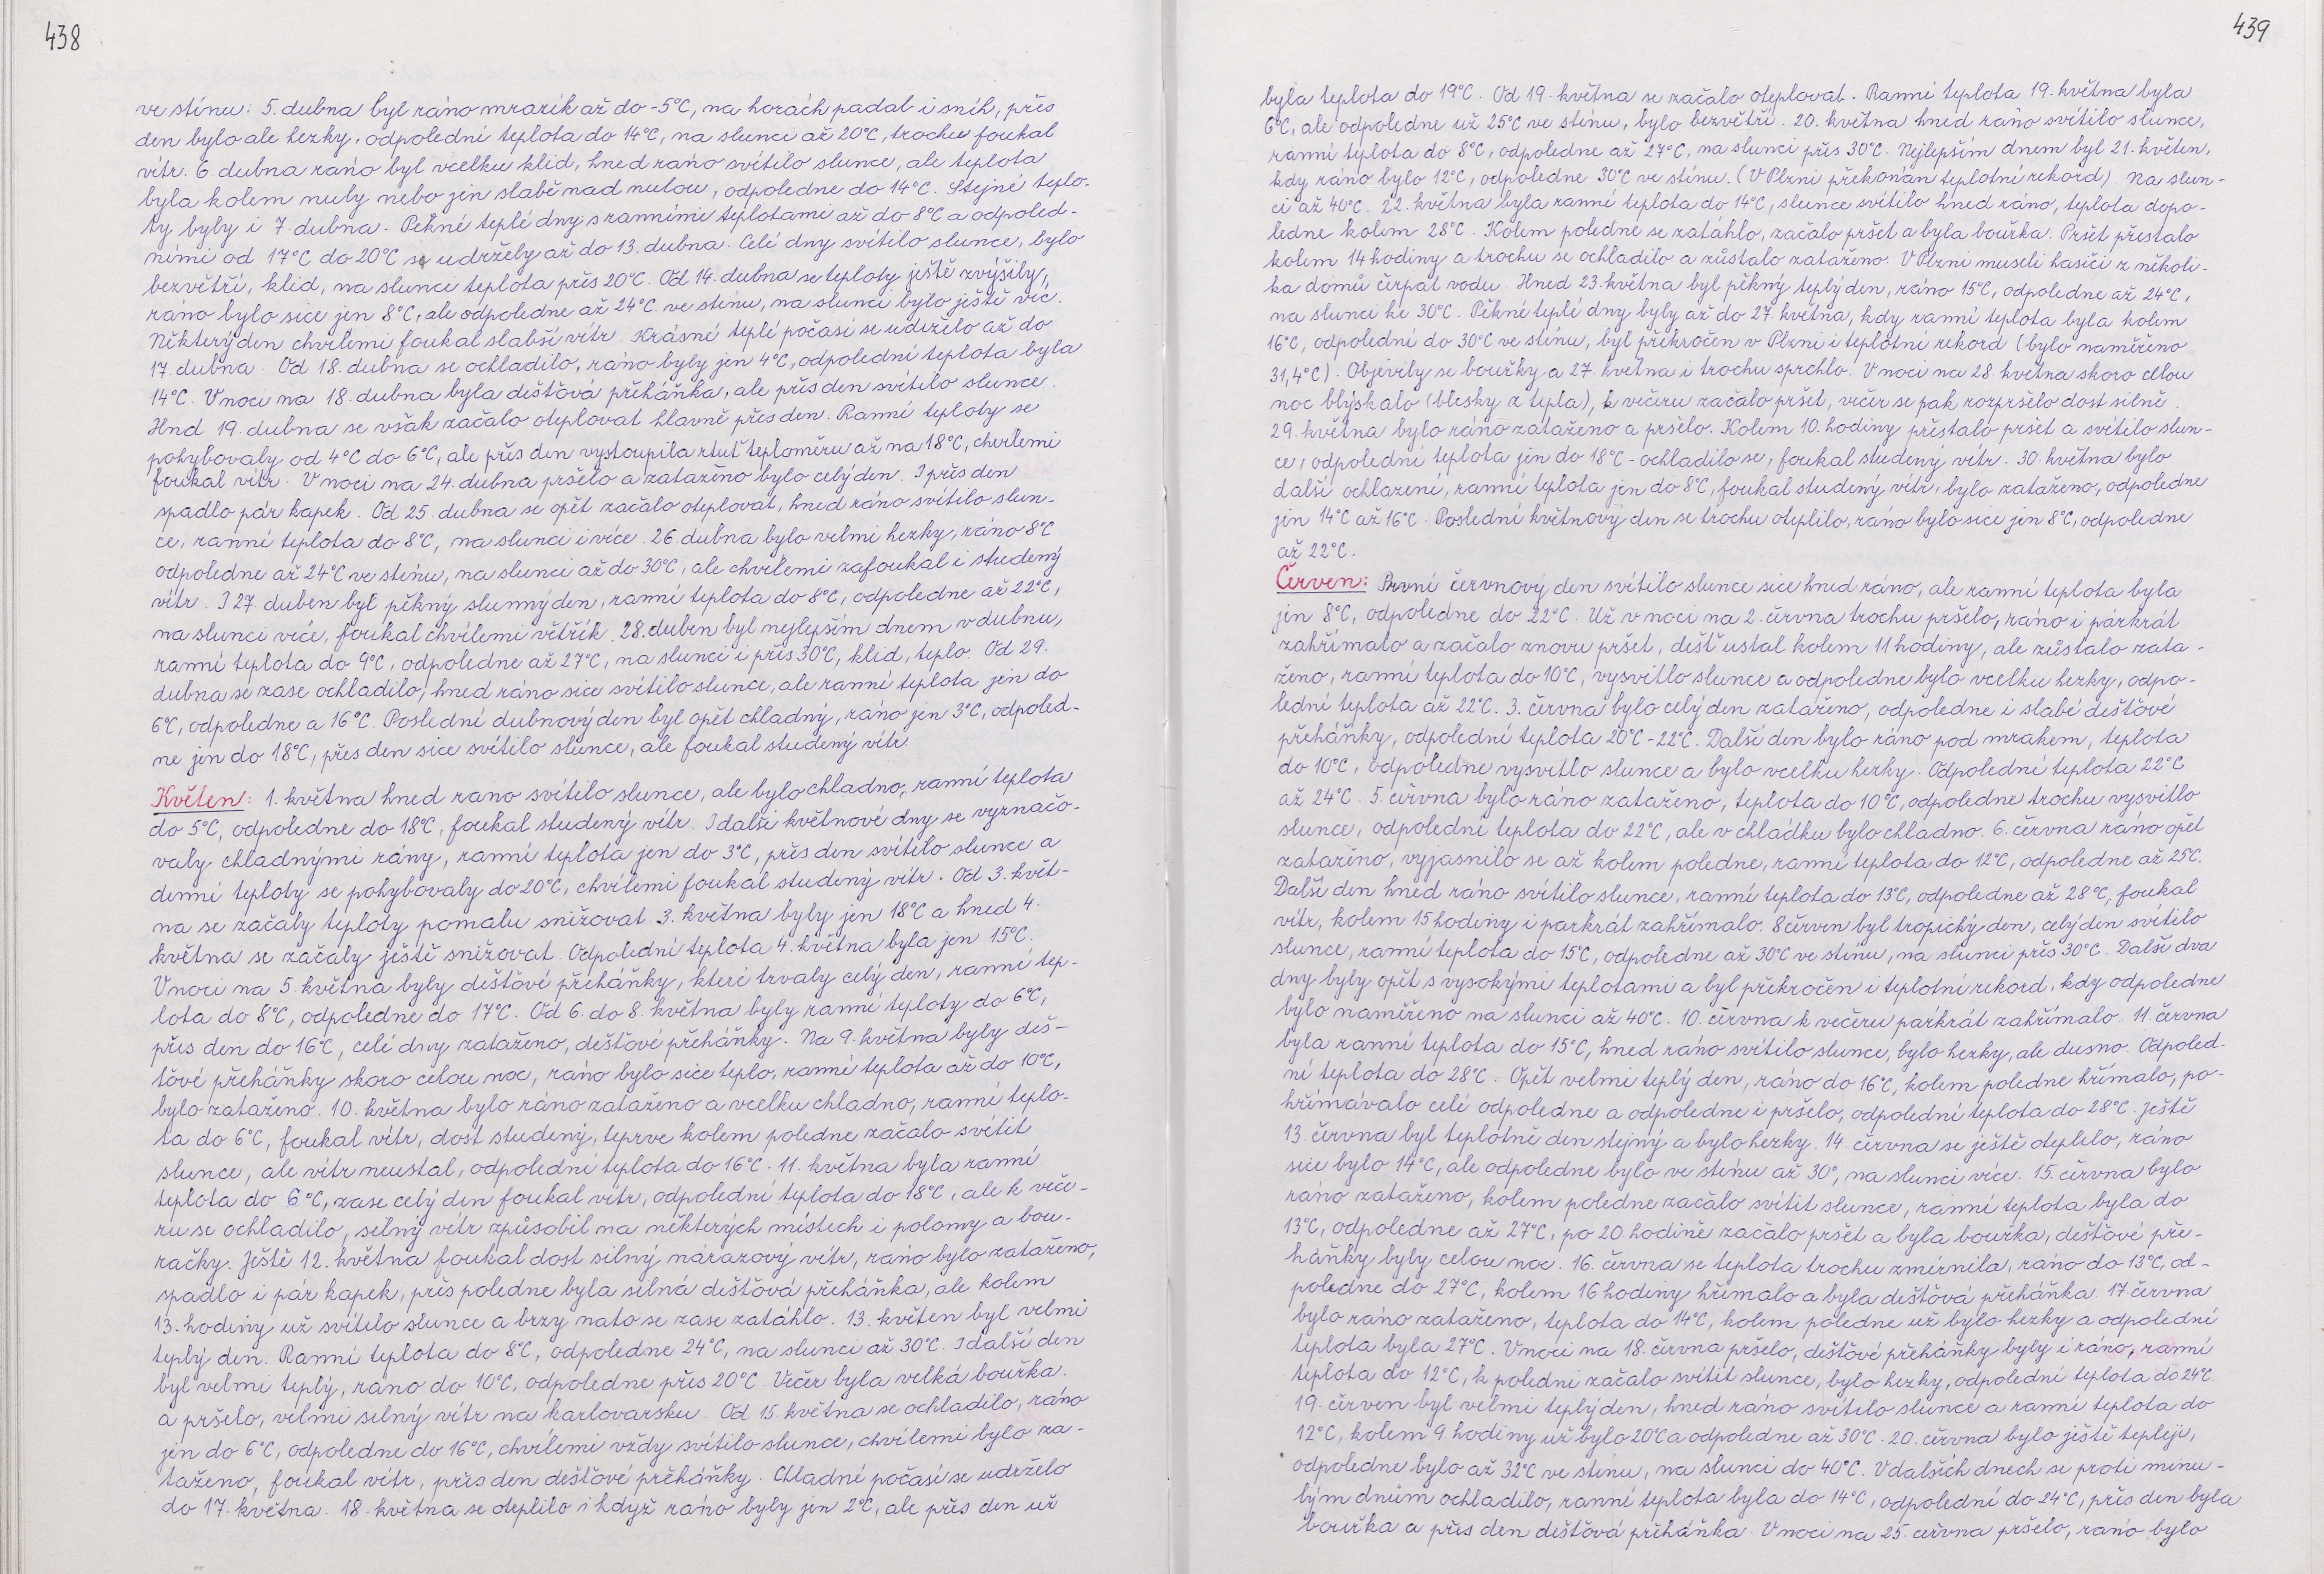 438
ve stínu: 5. dubna byl ráno mrazík až do -5°C, na horách padal i sníh, přes
den bylo ale hezky, odpolední teplota do 14°C, na slunci až 20°C, trochu foukal
vítr. 6 dubna ráno byl vcelku klid, hned ráno svítilo slunce, ale teplota
byla kolem nuly nebo jen slabě nad nulou, odpoledne do 14°C. Stejné teplo-
ty byly i 7. dubna. Pěkné teplé dny s ranními teplotami až do 8°C a odpoled-
ními od 17°C do 20°C se udržely až do 13. dubna. Celé dny svítilo slunce, bylo
bezvětří, klid, na slunci teplota přes 20°C. Od 14. dubna se teploty ještě zvýšily,
ráno bylo sice jen 8°C, ale odpoledne až 24°C ve stínu, na slunci bylo ještě víc.
Některý den chvílemi foukal slabší vítr. Krásné teplé počasí se udrželo až do
17. dubna. Od 18. dubna se ochladilo, ráno byly jen 4°C, odpolední teplota byla
14°C. V noci na 18. dubna byla dešťová přeháňka, ale přes den svítilo slunce.
Hnd 19. dubna se však začalo oteplovat hlavně přes den. Ranní teploty se
pohybovaly od 4°C do 6°C, ale přes den vystoupila rtuť teploměru až na 18°C, chvílemi
foukal vítr. V noci na 24. dubna pršelo a zataženo bylo celý den. I přes den
spadlo pár kapek. Od 25. dubna se opět začalo oteplovat, hned ráno svítilo slun-
ce, ranní teplota do 8°C, na slunci i více. 26. dubna bylo velmi hezky, ráno 8°C
odpoledne až 24°C ve stínu, na slunci až do 30°C, ale chvílemi zafoukal i studený
vítr. I 27. duben byl pěkný slunný den, ranní teplota do 8°C, odpoledne až 22°C,
na slunci více, foukal chvílemi větřík. 28. duben byl nejlepším dnem v dubnu,
ranní teplota do 9°C, odpoledne až 27°C, na slunci i přes 30°C, klid, teplo. Od 29.
dubna se zase ochladilo, hned ráno sice svítilo slunce, ale ranní teplota jen do
6°C, odpoledne a 16°C. Poslední dubnový den byl opět chladný, ráno jen 3°C, odpoled-
ne jen do 18°C, přes den sice svítilo slunce, ale foukal studený vítr.
Květen: 1. května hned rano svítilo slunce, ale bylo chladno, ranní teplota
do 5°C, odpoledne do 18°C, foukal studený vítr. I další květnové dny se vyznačo-
valy chladnými rány, ranní teplota jen do 3°C, přes den svítilo slunce a
denní teploty se pohybovaly do 20°C, chvílemi foukal studený vítr. Od 3. květ-
na se začaly teploty pomalu snižovat. 3. května byly jen 18°C a hned 4.
května se začaly ještě snižovat. Odpolední teplota 4. května byla jen 15°C.
V noci na 5. května byly dešťové přeháňky, které trvaly celý den, ranní tep-
lota do 8°C, odpoledne do 17°C. Od 6. do 8. května byly ranní teploty do 6°C,
přes den do 16°C, celé dny zataženo, dešťové přeháňky. Na 9. května byly deš-
ťové přeháňky skoro celou noc, ráno bylo sice teplo, ranní teplota až do 10°C,
bylo zataženo. 10. května bylo ráno zataženo a vcelku chladno, ranní teplo-
ta do 6°C, foukal vítr, dost studený, teprve kolem poledne začalo svítit
slunce, ale vítr neustal, odpolední teplota do 16°C. 11. května byla ranní
teplota do 6°C, zase celý den foukal vítr, odpolední teplota do 18°C, ale k veče-
ru se ochladilo, silný vítr způsobil na některých místech i polomy a bou-
račky. Ještě 12. května foukal dost silný nárazový vítr, ráno bylo zataženo,
spadlo i pár kapek, přes poledne byla silná dešťová přeháňka, ale kolem
13. hodiny už svítilo slunce a brzy nato se zase zatáhlo. 13. květen byl velmi
teplý den. Ranní teplota do 8°C, odpoledne 24°C, na slunci až 30°C. I další den
byl velmi teplý, ráno do 10°C, odpoledne přes 20°C. Večer byla velká bouřka.
a pršelo, velmi silný vítr na karlovarsku. Od 15. května se ochladilo, ráno
jen do 6°C, odpoledne do 16°C, chvílemi vždy svítilo slunce, chvílemi bylo za-
taženo, foukal vítr, přes den dešťové přeháňky. Chladné počasí se udrželo
do 17. května. 18. května se oteplilo i když ráno byly jen 2°C, ale přes den už
439
byla teplota do 19°C. Od 19. května se začalo oteplovat. Ranní teplota 19. května byla
6°C, ale odpoledne už 25°C ve stínu, bylo bezvětří. 20. května hned ráno svítilo slunce,
ranní teplota do 8°C, odpoledne až 27°C, na slunci přes 30°C. Nejlepším dnem byl 21. květen,
kdy ráno bylo 12°C, odpoledne 30°C ve stínu. (V Plzni překonán teplotní rekord). Na slun-
ci až 40°C. 22. května byla ranní teplota do 14°C, slunce svítilo hned ráno, teplota dopo-
ledne kolem 28°C. Kolem poledne se zatáhlo, začalo pršet a byla bouřka. Pršet přestalo
kolem 14 hodiny a trochu se ochladilo a zůstalo zataženo. V Plzni museli hasiči z několi-
ka domů čerpat vodu. Hned 23. května byl pěkný teplý den, ráno 15°C, odpoledne až 24°C,
na slunci ke 30°C. Pěkné teplé dny byly až do 27. května, kdy ranní teplota byla kolem
16°C, odpolední do 30°C ve stínu, byl překročen v Plzni i teplotní rekord (bylo naměřeno
31,4°C). Objevily se bouřky a 27. května i trochu sprchlo. V noci na 28. května skoro celou
noc blýskalo (blesky z tepla), k večeru začalo pršet, večer se pak rozpršelo dost silně.
29. května bylo ráno zataženo a pršelo. Kolem 10. hodiny přestalo pršet a svítilo slun-
ce, odpolední teplota jen do 18°C - ochladilo se, foukal studený vítr. 30. května bylo
další ochlazení, ranní teplota jen do 8°C, foukal studený vítr, bylo zataženo, odpoledne
jen 14°C až 16°C. Poslední květnový den se trochu oteplilo, ráno bylo sice jen 8°C, odpoledne
až 22°C.
Červen: První červnový den svítilo slunce sice hned ráno, ale ranní teplota byla
jen 8°C, odpoledne do 22°C. Už v noci na 2. června trochu pršelo, ráno i párkrát
zahřímalo a začalo znovu pršet, déšť ustal kolem 11 hodiny, ale zůstalo zata-
ženo, ranní teplota do 10°C, vysvitlo slunce a odpoledne bylo vcelku hezky, odpo-
lední teplota až 22°C. 3. června bylo celý den zataženo, odpoledne i slabé dešťové
přeháňky, odpolední teplota 20°C - 22°C. Další den bylo ráno pod mrakem, teplota
do 10°C, odpoledne vysvitlo slunce a bylo vcelku hezky. Odpolední teplota 22°C
až 24°C. 5. června bylo ráno zataženo, teplota do 10°C, odpoledne trochu vysvitlo
slunce, odpolední teplota do 22°C, ale v chládku bylo chladno. 6. června ráno opět
zataženo, vyjasnilo se až kolem poledne, ranní teplota do 12°C, odpoledne až 25°C.
Další den hned ráno svítilo slunce, ranní teplota do 13°C, odpoledne až 28°C, foukal
vítr, kolem 15 hodiny i parkrát zahřímalo. 8 červen byl tropický den, celý den svítilo
slunce, ranní teplota do 15°C, odpoledne až 30°C ve stínu, na slunci přes 30°C. Další dva
dny byly opět s vysokými teplotami a byl překročen i teplotní rekord, kdy odpoledne
bylo naměřeno na slunci až 40°C. 10. června k večeru párkrát zahřímalo. 11. června
byla ranní teplota do 15°C, hned ráno svítilo slunce, bylo hezky, ale dusno. Odpoled-
ní teplota do 28°C. Opět velmi teplý den, ráno do 16°C, kolem poledne hřímalo, po-
hřímávalo celé odpoledne a odpoledne i pršelo, odpolední teplota do 28°C. Ještě
13. června byl teplotně den stejný a bylo hezky. 14. června se ještě oteplilo, ráno
sice bylo 14°C, ale odpoledne bylo ve stínu až 30°, na slunci více. 15. června bylo
ráno zataženo, kolem poledne začalo svítit slunce, ranní teplota byla do
13°C, odpoledne až 27°C, po 20. hodině začalo pršet a byla bouřka, dešťové pře-
háňky byly celou noc. 16. června se teplota trochu zmírnila, ráno do 13°C, od-
poledne do 27°C, kolem 16 hodiny hřímalo a byla dešťová přeháňka. 17 června
bylo ráno zataženo, teplota do 14°C, kolem poledne už bylo hezky a odpolední
teplota byla 27°C. V noci na 18. června pršelo, dešťové přeháňky byly i ráno, ranní
teplota do 12°C, k poledni začalo svítit slunce, bylo hezky, odpolední teplota do 24°C.
19. červen byl velmi teplý den, hned ráno svítilo slunce a ranní teplota do
12°C, kolem 9. hodiny už bylo 20°C a odpoledne až 30°C. 20. června bylo ještě tepleji,
odpoledne bylo až 32°C ve stínu, na slunci do 40°C. V dalších dnech se proti minu-
lým dnům ochladilo, ranní teplota byla do 14°C, odpolední do 24°C, přes den byla
bouřka a přes den dešťová přeháňka. V noci na 25. června pršelo, ráno bylo